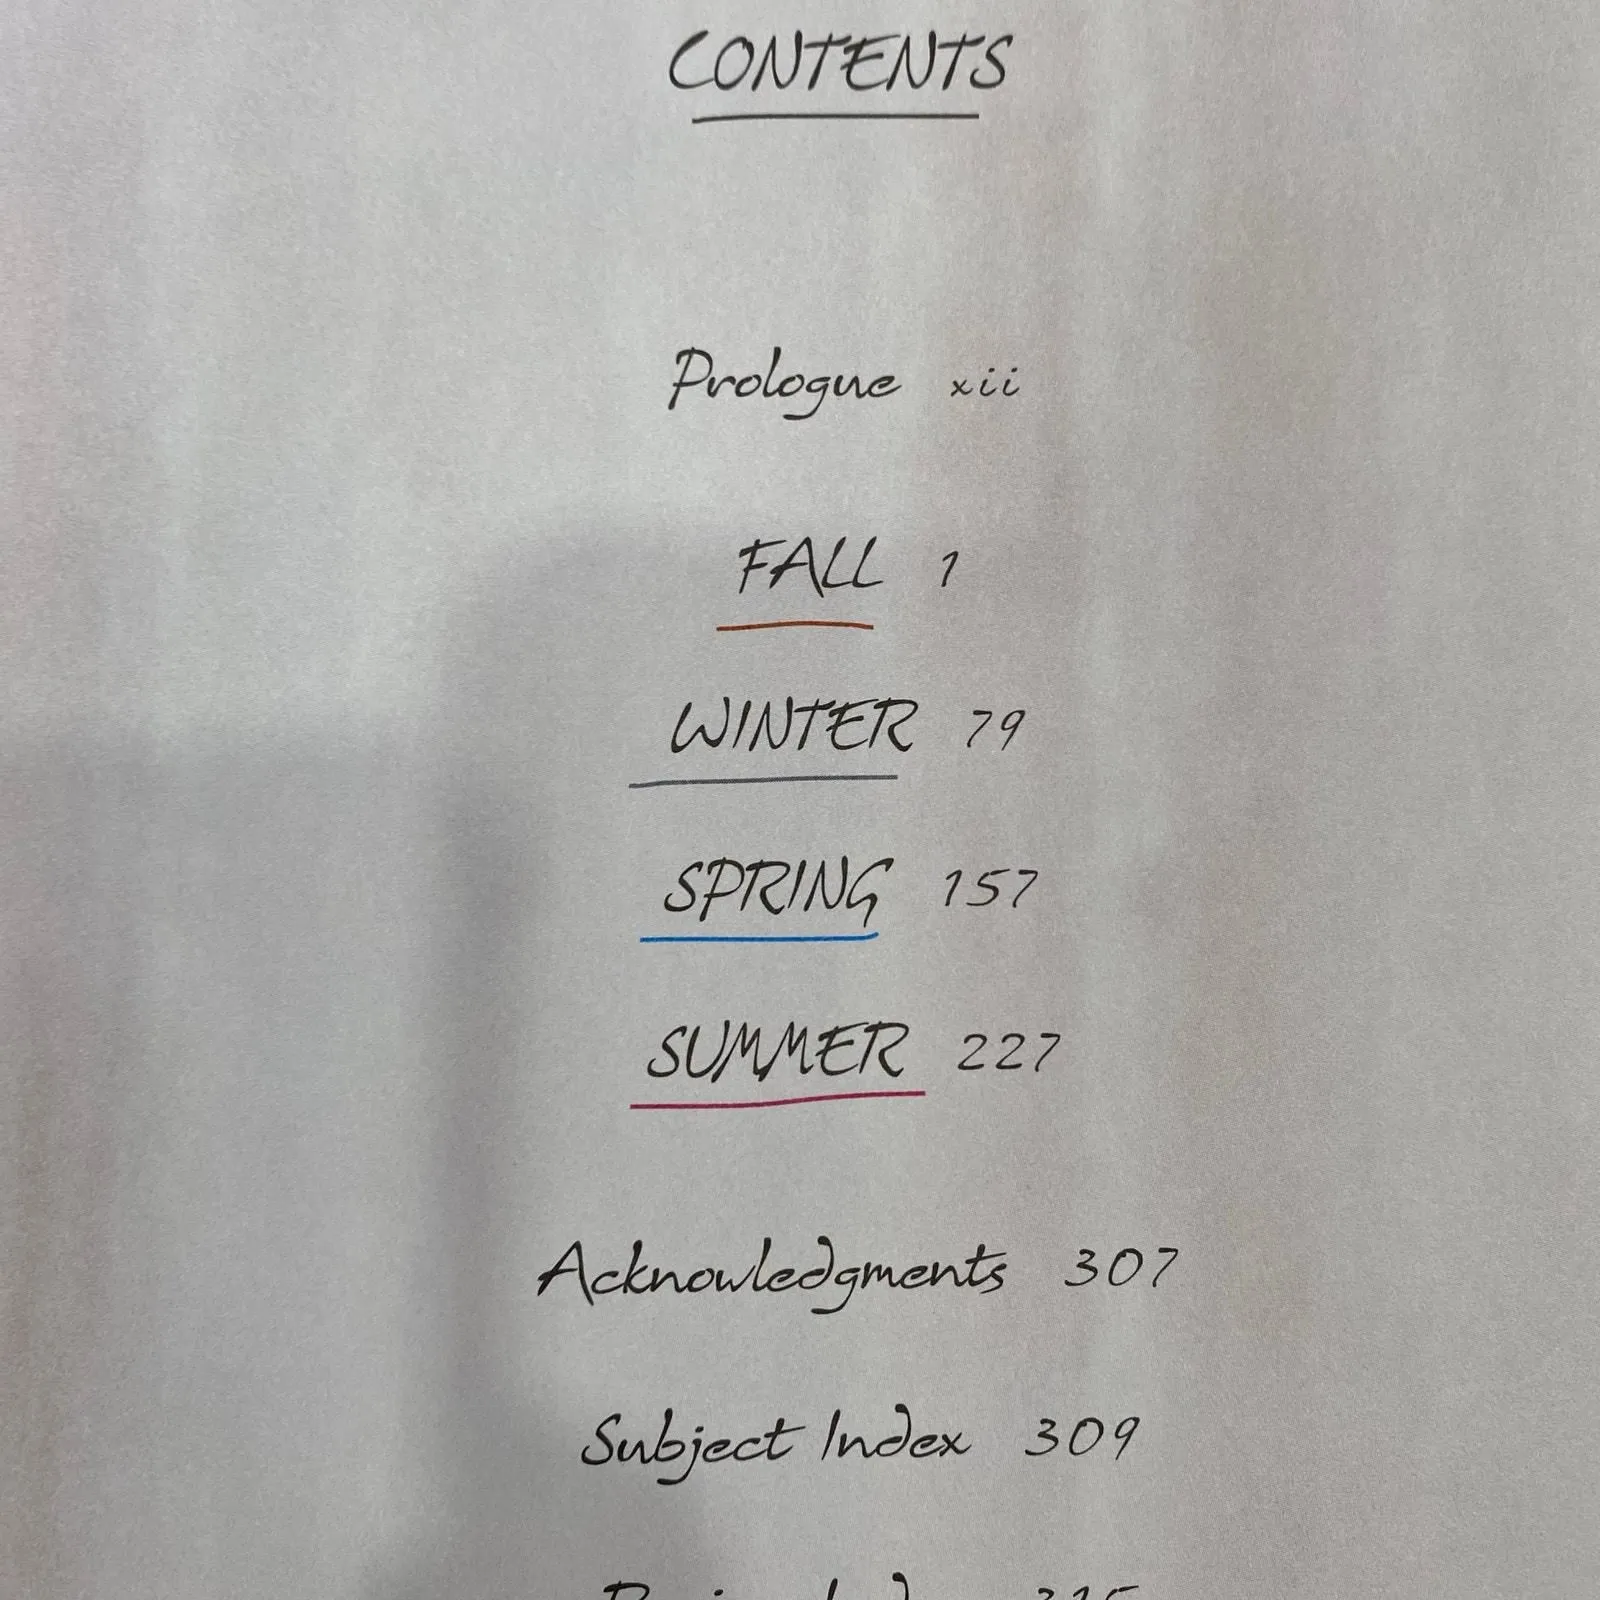 CONTENTS
Prologue xii
FALL 1
WINTER 79
SPRING 157
SUMMER 227
Acknowledgments 307
Subject Index 309